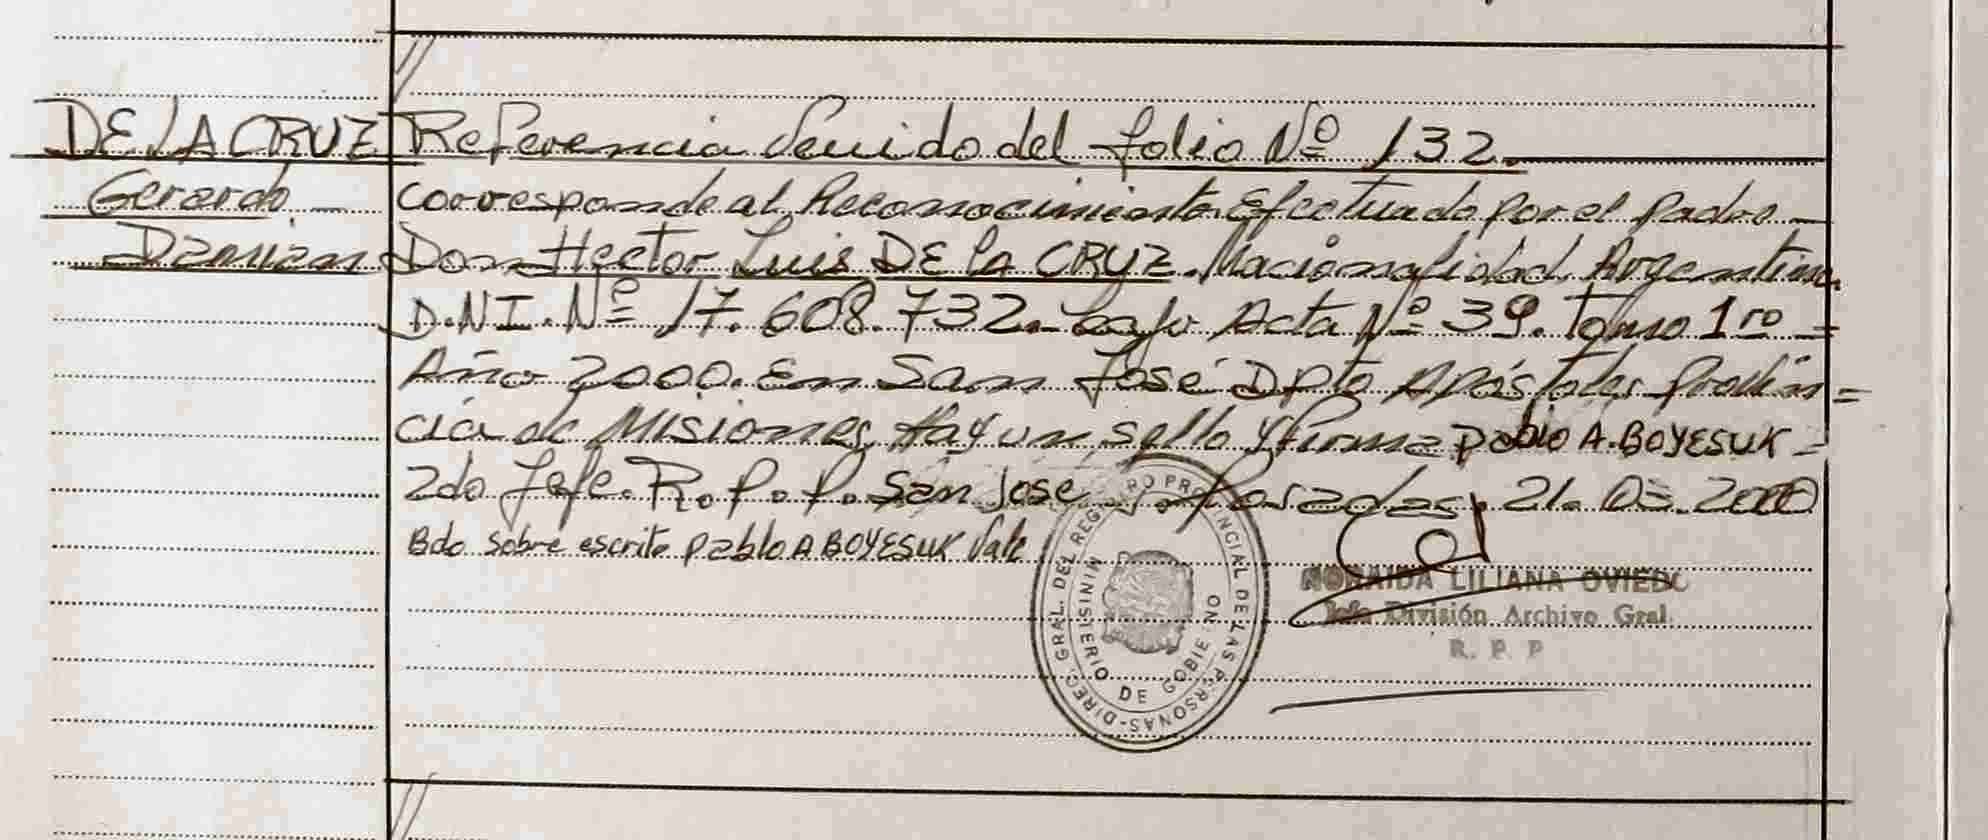 DE LA CRUZ
Gerardo
Damian
Referencia Venido del folio Nº 132.
corresponde al Reconocimiento Efectuado por el padre
Don Hector Luis DE la CRUZ. Nacionalidad Argentina
D.N.I. Nº 17.608.732. bajo Acta Nº 39. Tomo 1ro =
Año 2000. En San José Dpto Apóstoles Provin=
cia de Misiones Hay un sello y firma pablo A. BOYESUK =
2do Jefe. R. P. P. San Jose Posadas, 21. 03. 2000
Bdo sobre escrito pablo A BOYESUK Vale
DIREC. GRAL. DEL REGISTRO PROVINCIAL DE LAS PERSONAS
MINISTERIO DE GOBIERNO
NORAIDA LILIANA OVIEDO
Jefe División Archivo Gral.
R. P. P